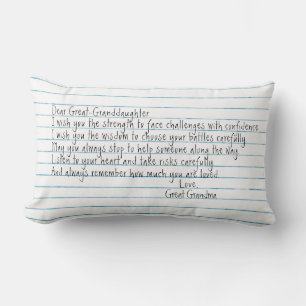 Dear Great-Granddaughter
I wish you the strength to face challenges with confidence
I wish you the wisdom to choose your battles carefully
May you always stop to help someone along the way
Listen to your heart and take risks carefully
And always remember how much you are loved
Love,
Great Grandma